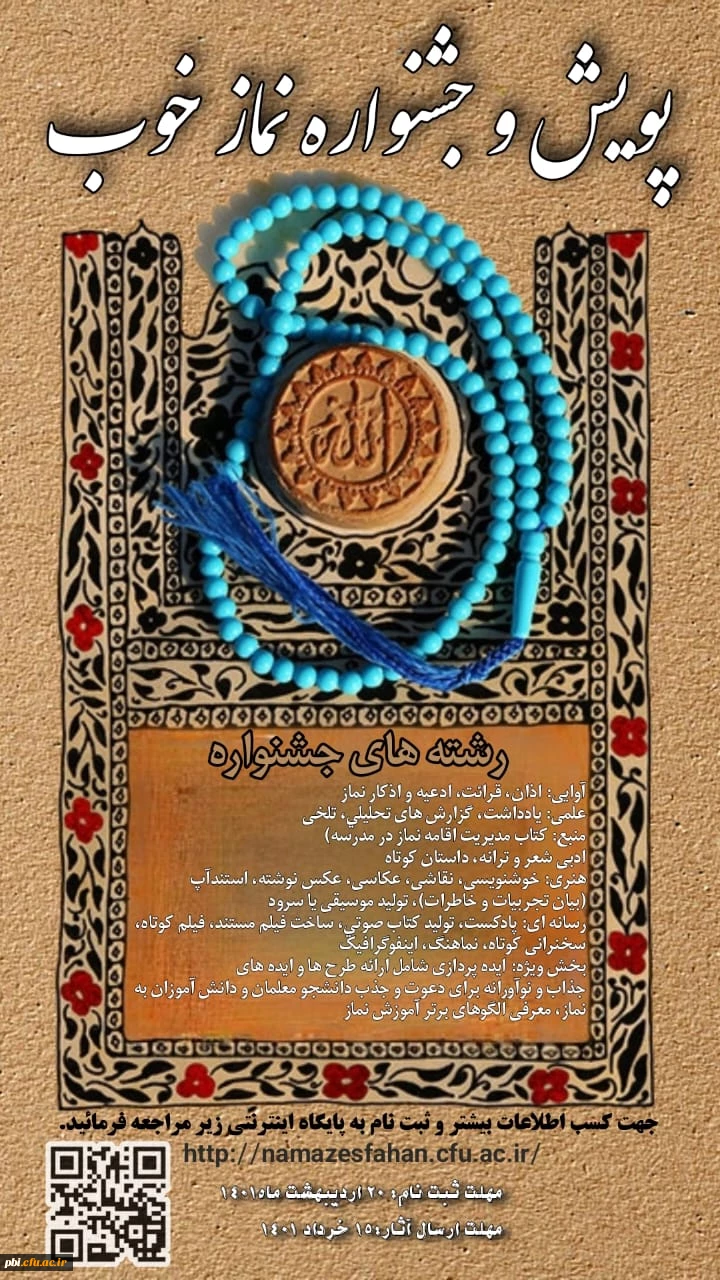 پویش و جشنواره نماز خوب
الله
رشته های جشنواره
آوایی: اذان، قرائت، ادعیه و اذکار نماز
علمی: یادداشت، گزارش های تحلیلی، تلخی
منبع: کتاب مدیریت اقامه نماز در مدرسه)
ادبی شعر و ترانه، داستان کوتاه
هنری: خوشنویسی، نقاشی، عکاسی، عکس نوشته، استندآپ
(بیان تجربیات و خاطرات)، تولید موسیقی یا سرود
رسانه ای: پادکست، تولید کتاب صوتی، ساخت فیلم مستند، فیلم کوتاه،
سخنرانی کوتاه، نماهنگ، اینفوگرافیک
بخش ویژه: ایده پردازی شامل ارائه طرح ها و ایده های
جذاب و نوآورانه برای دعوت و جذب دانشجو معلمان و دانش آموزان به
نماز، معرفی الگوهای برتر آموزش نماز
جهت کسب اطلاعات بیشتر و ثبت نام به پایگاه اینترنتی زیر مراجعه فرمائید.
http://namazesfahan.cfu.ac.ir/
مهلت ثبت نام: ۲۰ اردیبهشت ماه۱۴۰۱
مهلت ارسال آثار:۱۵ خرداد ۱۴۰۱
pbi.cfu.ac.ir